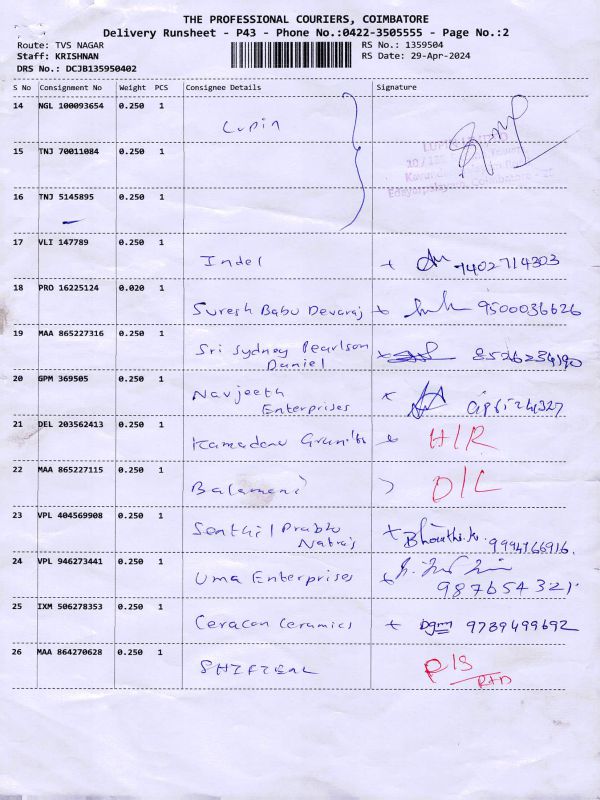 THE PROFESSIONAL COURIERS, COIMBATORE
Delivery Runsheet - P43 - Phone No.:0422-3505555 - Page No.:2
Route: TVS NAGAR
Staff: KRISHNAN
DRS No.: DCJB135950402
RS No.: 1359504
RS Date: 29-Apr-2024
S No Consignment No Weight PCS Consignee Details Signature
14 NGL 100093654 0.250 1 Lupin
15 TNJ 70011084 0.250 1
16 TNJ 5145895 0.250 1
17 VLI 147789 0.250 1 Indel 7402714303
18 PRO 16225124 0.020 1 Suresh Babu Devaraj 9500036626
19 MAA 865227316 0.250 1 Sri Sydney Pearlson
Daniel 8526234190
20 GPM 369505 0.250 1 Navjeeth
Enterprises
21 DEL 203562413 0.250 1 Kamadenu H/R
22 MAA 865227115 0.250 1 Balamani D/L
23 VPL 404569908 0.250 1 Senthil Prabhu
Natraj Bharathi.K. 9994766916.
24 VPL 946273441 0.250 1 Uma Enterprises 987654321
25 IXM 506278353 0.250 1 Ceracon Ceramics Dgm 9789499692
26 MAA 864270628 0.250 1 R/S